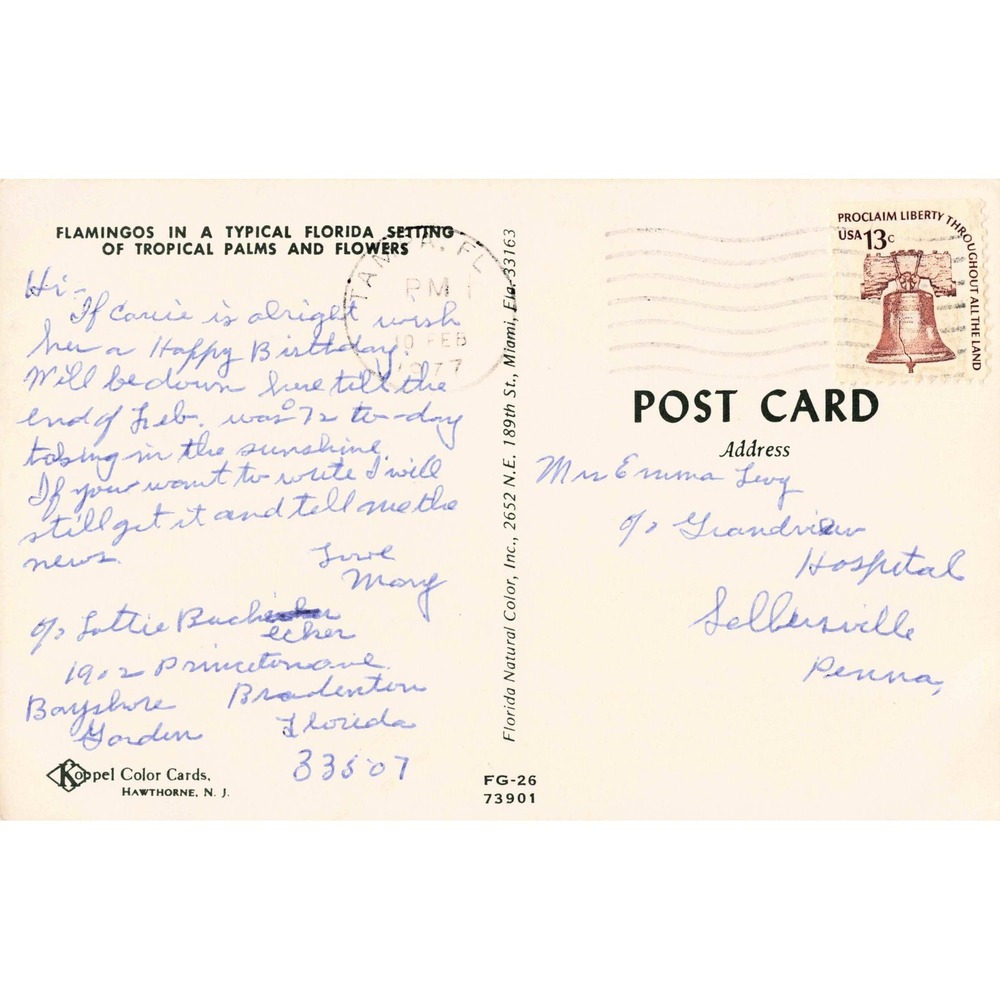 FLAMINGOS IN A TYPICAL FLORIDA SETTING
OF TROPICAL PALMS AND FLOWERS
Hi-
If Carrie is alright wish
her a Happy Birthday.
Will be down here till the
end of Feb. was 72° to-day
taking in the sunshine.
If you want to write I will
still get it and tell me the
news.
Love
Mary
c/o Lottie
1902 Princeton ave.
Bayshore Bradenton
Garden Florida
33507
Koppel Color Cards,
HAWTHORNE, N. J.
TAMPA, FL
PM
10 FEB
1977
Florida Natural Color, Inc., 2652 N.E. 189th St., Miami, Fla. 33163
FG-26
73901
PROCLAIM LIBERTY THROUGHOUT ALL THE LAND
USA 13c
POST CARD
Address
Mrs Emma Levy
c/o Grandview
Hospital
Sellersville
Penna,